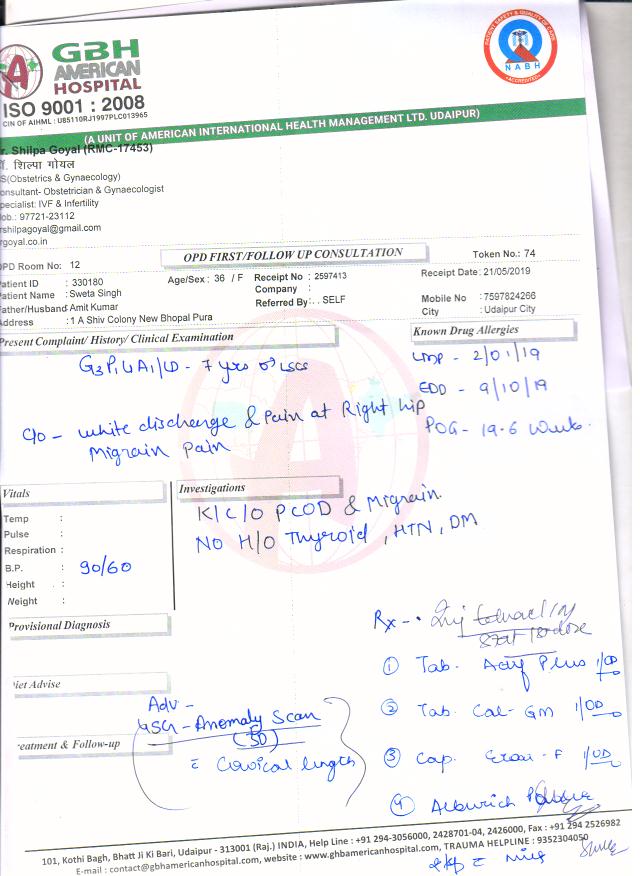 GBH
AMERICAN
HOSPITAL
ISO 9001 : 2008
CIN OF AIHML : U85110RJ1997PLC013965
PATIENT SAFETY & QUALITY OF CARE
NABH
ACCREDITED
(A UNIT OF AMERICAN INTERNATIONAL HEALTH MANAGEMENT LTD. UDAIPUR)
r. Shilpa Goyal (RMC-17453)
डॉ. शिल्पा गोयल
S(Obstetrics & Gynaecology)
onsultant- Obstetrician & Gynaecologist
pecialist: IVF & Infertility
ob.: 97721-23112
rshilpagoyal@gmail.com
rgoyal.co.in
OPD FIRST/FOLLOW UP CONSULTATION
Token No.: 74
OPD Room No: 12
Patient ID : 330180
Age/Sex : 36 / F
Receipt No : 2597413
Receipt Date : 21/05/2019
Patient Name : Sweta Singh
Company :
Father/Husband Amit Kumar
Referred By : . . SELF
Mobile No : 7597824266
Address : 1 A Shiv Colony New Bhopal Pura
City : Udaipur City
Present Complaint/ History/ Clinical Examination
Known Drug Allergies
G3P1LA1/LD - 7 yrs LSCS
LMP - 2/01/19
EDD - 9/10/19
POG - 19.6 weeks.
C/o - white discharge & Pain at Right hip
Migrain Pain
Vitals
Investigations
Temp :
Pulse :
Respiration :
B.P. : 90/60
Height :
Weight :
K/C/O PCOD & Migrain
NO H/O Thyroid, HTN, DM
Provisional Diagnosis
Rx - Inj
stat
① Tab. Actif Plus 1/OD
iet Advise
Adv -
USG - Anomaly Scan
(5D)
c̄ Cervical length
② Tab. Cal-GM 1/OD
reatment & Follow-up
③ Cap. 1/OD
④
101, Kothi Bagh, Bhatt Ji Ki Bari, Udaipur - 313001 (Raj.) INDIA, Help Line : +91 294-3056000, 2428701-04, 2426000, Fax : +91 294 2526982
E-mail : contact@gbhamericanhospital.com, website : www.gbhamericanhospital.com, TRAUMA HELPLINE : 9352304050